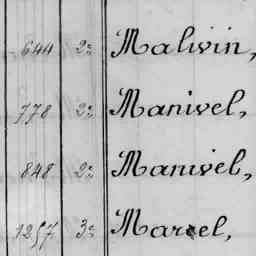 644 2º Malvin,
778 2º Manivel,
848 2º Manivel,
1257 3º Marcel,